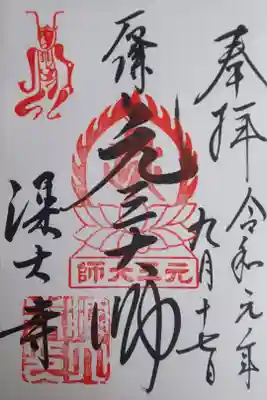 奉拝
令和元年
九月十七日
元三大師
元三大師
深大寺